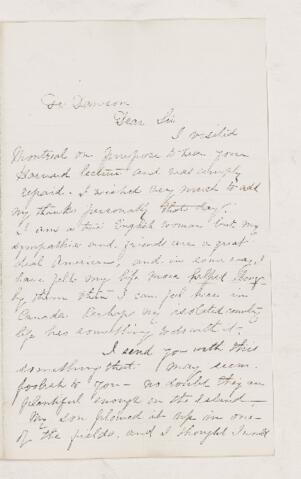 Dr Dawson
Dear Sir
I visited
Montreal on purpose to hear your
Harvard lecture and was amply
repaid. I wished very much to add
my thanks personally that day.
I am a true English woman but my
sympathies and friends are a great
deal American, and in some ways I
have felt my life more helped along
by them than I can for here in
Canada. Perhaps my isolated country
life has something to do with it.
I send you with this
something that may seem
foolish to you – no doubt they are
plentiful enough on the Island –
My son plowed it up in one
of the fields, and I thought I